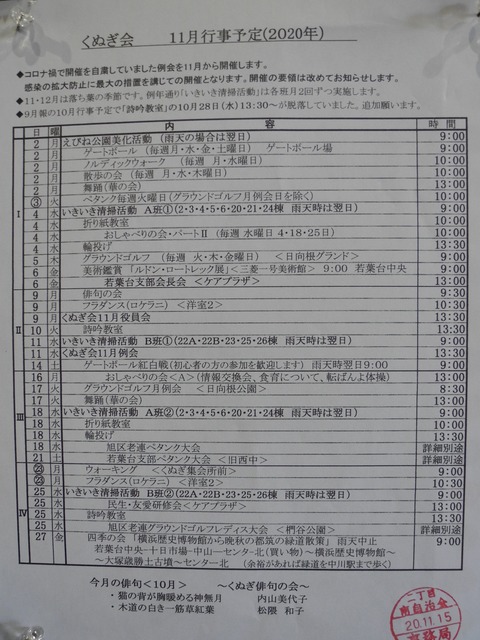 くぬぎ会　11月行事予定(2020年)
◆コロナ禍で開催を自粛していました例会を11月から開催します。
感染の拡大防止に最大の措置を講じての開催となります。開催の要領は改めてお知らせします。
◆11・12月は落ち葉の季節です。例年通り「いきいき清掃活動」は各班月2回ずつ実施します。
◆9月報の10月行事予定で「詩吟教室」の10月28日(水)13:30～が脱落していました。追加願います。
日 曜 内　容 時間
Ⅰ
2 月 えびね公園美化活動 (雨天の場合は翌日) 9:00
2 月 ゲートボール (毎週月・水・金・土曜日) ゲートボール場 9:00
2 月 ノルディックウォーク (毎週 月・水曜日) 10:00
2 月 散歩の会 (毎週 月・水・木曜日) 10:00
2 月 舞踊(華の会) 10:00
③ 火 ペタンク毎週火曜日(グラウンドゴルフ月例会日を除く) 10:00
4 水 いきいき清掃活動 A班①(2・3・4・5・6・20・21・24棟 雨天時は翌日) 9:00
4 水 折り紙教室 10:00
4 水 おしゃべりの会・パートⅡ (毎週 水曜日 4・18・25日) 10:00
4 水 輪投げ 13:30
5 木 グラウンドゴルフ (毎週 火・木・金曜日) <日向根グランド> 9:00
6 金 美術鑑賞 「ルドン・ロートレック展」<三菱一号美術館> 9:00 若葉台中央 9:00
6 金 若葉台支部会長会 <ケアプラザ> 13:30
Ⅱ
9 月 俳句の会 9:30
9 月 フラダンス(ロケラニ) <洋室2> 10:30
9 月 くぬぎ会11月役員会 13:30
10 火 詩吟教室 13:30
11 水 いきいき清掃活動 B班①(22A・22B・23・25・26棟 雨天時は翌日) 9:00
11 水 くぬぎ会11月例会 13:30
14 土 ゲートボール紅白戦(初心者の方の参加を歓迎します) 雨天時翌日9:00 9:00
Ⅲ
16 月 おしゃべりの会<A>(情報交換会、食育について、転ばんよ体操) 13:00
17 火 グラウンドゴルフ月例会 <日向根公園> 8:30
17 火 舞踊(華の会) 13:00
18 水 いきいき清掃活動 A班②(2・3・4・5・6・20・21・24棟 雨天時は翌日) 9:00
18 水 折り紙教室 10:00
18 水 輪投げ 13:30
18 水 旭区老連ペタンク大会 詳細別途
21 土 若葉台支部ペタンク大会 <旧西中> 詳細別途
Ⅳ
㉓ 月 ウォーキング <くぬぎ集会所前> 9:00
㉓ 月 フラダンス(ロケラニ) <洋室2> 10:30
25 水 いきいき清掃活動 B班②(22A・22B・23・25・26棟 雨天時は翌日) 9:00
25 水 民生・友愛研修会<ケアプラザ> 13:00
25 水 詩吟教室 13:30
25 水 旭区老連グラウンドゴルフレディス大会 <椚谷公園> 詳細別途
27 金 四季の会 「横浜歴史博物館から晩秋の都筑の緑道散策」 雨天中止 9:00
若葉台中央―十日市場―中山―センター北(買い物)～横浜歴史博物館～
～大塚歳勝土古墳～センター北 (余裕があれば緑道を中川駅まで歩く)
今月の俳句<10月> ～くぬぎ俳句の会～
・猫の背が胸暖める神無月　内山美代子
・木道の白き一筋草紅葉　松隈 和子
二丁目
南自治会
20.11.15
事務局